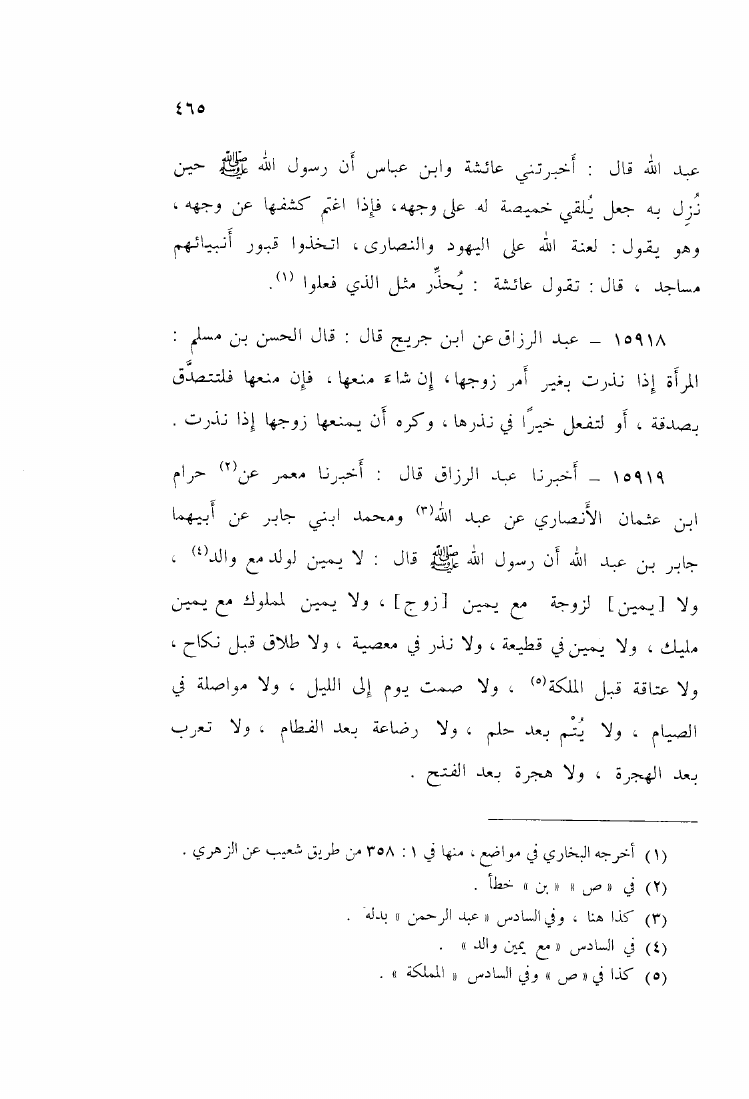 ٤٦٥
عبد الله قال : أخبرتني عائشة وابن عباس أن رسول الله ﷺ حين
نُزِل به جعل يُلقي خميصة له على وجهه، فإذا اغتم كشفها عن وجهه ،
وهو يقول : لعنة الله على اليهود والنصارى ، اتخذوا قبور أنبيائهم
مساجد ، قال : تقول عائشة : يُحذِّر مثل الذي فعلوا (١).
١٥٩١٨ – عبد الرزاق عن ابن جريج قال : قال الحسن بن مسلم :
المرأة إذا نذرت بغير أمر زوجها، إن شاء منعها ، فإن منعها فلتتصدَّق
بصدقة ، أو لتفعل خيرًا في نذرها ، وكره أن يمنعها زوجها إذا نذرت .
١٥٩١٩ – أخبرنا عبد الرزاق قال : أخبرنا معمر عن(٢) حرام
ابن عثمان الأنصاري عن عبد الله(٣) ومحمد ابني جابر عن أبيهما
جابر بن عبد الله أن رسول الله ﷺ قال : لا يمين لولد مع والد(٤) ،
ولا [يمين] لزوجة مع يمين [زوج] ، ولا يمين لمملوك مع يمين
مليك ، ولا يمين في قطيعة ، ولا نذر في معصية ، ولا طلاق قبل نكاح ،
ولا عتاقة قبل الملكة(٥) ، ولا صمت يوم إلى الليل ، ولا مواصلة في
الصيام ، ولا يُتْم بعد حلم ، ولا رضاعة بعد الفطام ، ولا تعرب
بعد الهجرة ، ولا هجرة بعد الفتح .
(١) أخرجه البخاري في مواضع ، منها في ١ : ٣٥٨ من طريق شعيب عن الزهري .
(٢) في « ص » « بن » خطأ .
(٣) كذا هنا ، وفي السادس « عبد الرحمن » بدله .
(٤) في السادس « مع يمين والد » .
(٥) كذا في « ص » وفي السادس « المملكة » .